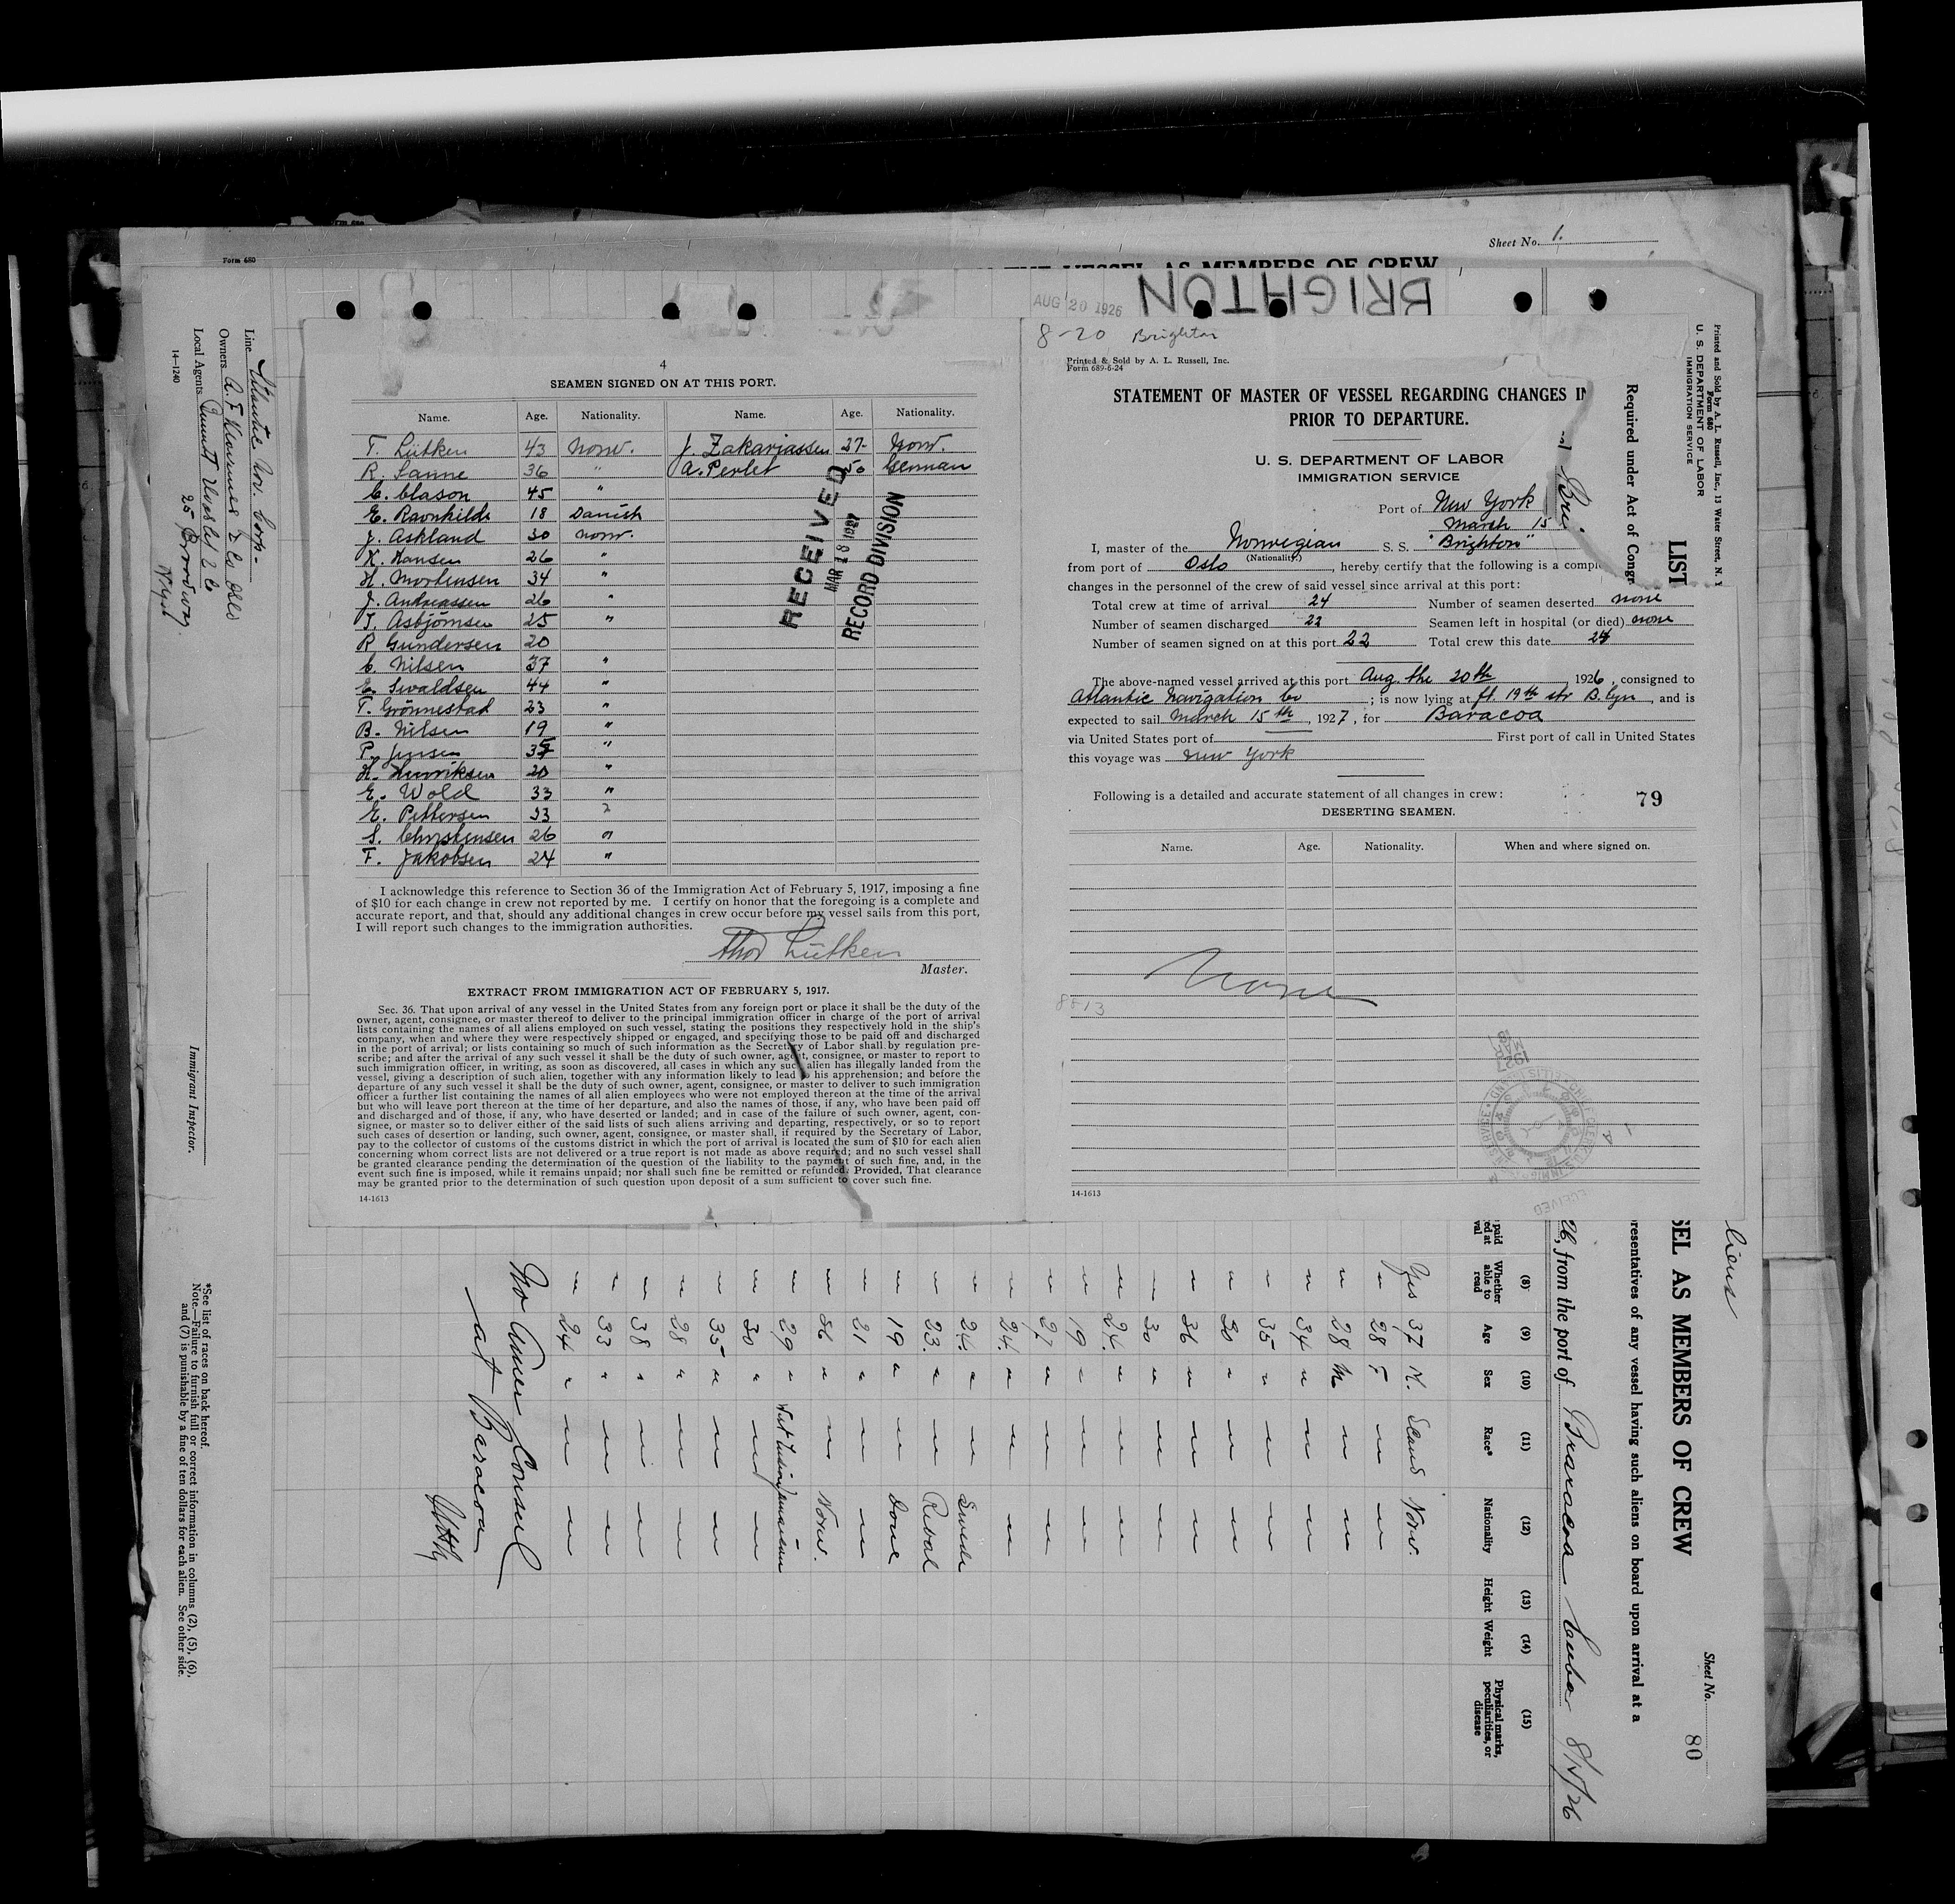 Sheet No. 1.
Form 680
THE VESSEL AS MEMBERS OF CREW
BRIGHTON
AUG 20 1926
4
SEAMEN SIGNED ON AT THIS PORT.
Name. Age. Nationality. Name. Age. Nationality.
T. Lütken 43 Norw. J. Zakariassen 27 Norw.
R. Sanne 36 " A. Perlet 50 German
C. Clason 45 "
E. Ravnkilde 18 Danish
J. Askland 30 Norw.
K. Hansen 26 "
H. Mortensen 34 "
J. Andreassen 26 "
T. Asbjörnsen 25 "
R Gundersen 20
C. Nilsen 37 "
E. Sivaldsen 44 "
T. Grönnestad 23 "
B. Nilsen 19 "
P. Jensen "
H. Henriksen 20 "
E. Wold 33 "
E. Pettersen 33 "
S. Christensen 26 "
F. Jakobsen 24 "
RECEIVED
MAR 18 1927
RECORD DIVISION
I acknowledge this reference to Section 36 of the Immigration Act of February 5, 1917, imposing a fine
of $10 for each change in crew not reported by me. I certify on honor that the foregoing is a complete and
accurate report, and that, should any additional changes in crew occur before my vessel sails from this port,
I will report such changes to the immigration authorities.
Thor Lütken
Master.
EXTRACT FROM IMMIGRATION ACT OF FEBRUARY 5, 1917.
Sec. 36. That upon arrival of any vessel in the United States from any foreign port or place it shall be the duty of the
owner, agent, consignee, or master thereof to deliver to the principal immigration officer in charge of the port of arrival
lists containing the names of all aliens employed on such vessel, stating the positions they respectively hold in the ship's
company, when and where they were respectively shipped or engaged, and specifying those to be paid off and discharged
in the port of arrival; or lists containing so much of such information as the Secretary of Labor shall by regulation pre-
scribe; and after the arrival of any such vessel it shall be the duty of such owner, agent, consignee, or master to report to
such immigration officer, in writing, as soon as discovered, all cases in which any such alien has illegally landed from the
vessel, giving a description of such alien, together with any information likely to lead to his apprehension; and before the
departure of any such vessel it shall be the duty of such owner, agent, consignee, or master to deliver to such immigration
officer a further list containing the names of all alien employees who were not employed thereon at the time of the arrival
but who will leave port thereon at the time of her departure, and also the names of those, if any, who have been paid off
and discharged and of those, if any, who have deserted or landed; and in case of the failure of such owner, agent, con-
signee, or master so to deliver either of the said lists of such aliens arriving and departing, respectively, or so to report
such cases of desertion or landing, such owner, agent, consignee, or master shall, if required by the Secretary of Labor,
pay to the collector of customs of the customs district in which the port of arrival is located the sum of $10 for each alien
concerning whom correct lists are not delivered or a true report is not made as above required; and no such vessel shall
be granted clearance pending the determination of the question of the liability to the payment of such fine, and, in the
event such fine is imposed, while it remains unpaid; nor shall such fine be remitted or refunded: Provided, That clearance
may be granted prior to the determination of such question upon deposit of a sum sufficient to cover such fine.
14-1613
8-20 Brighton
Printed & Sold by A. L. Russell, Inc.
Form 689-8-24
STATEMENT OF MASTER OF VESSEL REGARDING CHANGES IN
PRIOR TO DEPARTURE.
U. S. DEPARTMENT OF LABOR
IMMIGRATION SERVICE
Port of New York
March 15
I, master of the Norwegian S. S. "Brighton"
(Nationality.)
from port of Oslo, hereby certify that the following is a compl
changes in the personnel of the crew of said vessel since arrival at this port:
Total crew at time of arrival 24 Number of seamen deserted none
Number of seamen discharged 22 Seamen left in hospital (or died) none
Number of seamen signed on at this port 22 Total crew this date 24
The above-named vessel arrived at this port Aug. the 20th, 1926, consigned to
Atlantic Navigation Co; is now lying at ft. 19th str B.lyn, and is
expected to sail March 15th, 1927, for Baracoa
via United States port of First port of call in United States
this voyage was New York
Following is a detailed and accurate statement of all changes in crew:
79
DESERTING SEAMEN.
Name. Age. Nationality. When and where signed on.
None
8-13
14-1613
Printed and Sold by A. L. Russell, Inc., 13 Water Street, N. Y
Form 680
U. S. DEPARTMENT OF LABOR
IMMIGRATION SERVICE
LIST
Required under Act of Congr
Bri
liens
Sheet No. 80
SEL AS MEMBERS OF CREW
resentatives of any vessel having such aliens on board upon arrival at a
26, from the port of Baracoa Cuba 8/15/26
(8) (9) (10) (11) (12) (13) (14) (15)
Whether able to read Age Sex Race* Nationality Height Weight Physical marks, peculiarities, or disease
Yes 37 M. Scand Norw.
" 28 F " "
" 28 M " "
" 34 " " "
" 35 " " "
" 30 " " "
" 36 " " "
" 30 " " "
" 24 " " "
" 19 " " "
" 27 " " "
" 24 " " "
" 24 " " Swede
" 23 " " Reval
" 19 " " Dane
" 21 " " "
" 36 " " Norw.
" 29 " West Indian Jamaican
" 30 " " "
" 35 " " "
" 28 " " "
" 38 " " "
" 33 " " "
" 24 " " "
No Amer Consul
at Baracoa
Line Atlantic Nav. Corp-
Owners A. F. Klaveness & Co Oslo
Local Agents
25 Broadway
14-1240
Immigrant Inspector.
*See list of races on back hereof.
Note.—Failure to furnish full or correct information in columns (2), (5), (6),
and (7) is punishable by a fine of ten dollars for each alien. See other side.